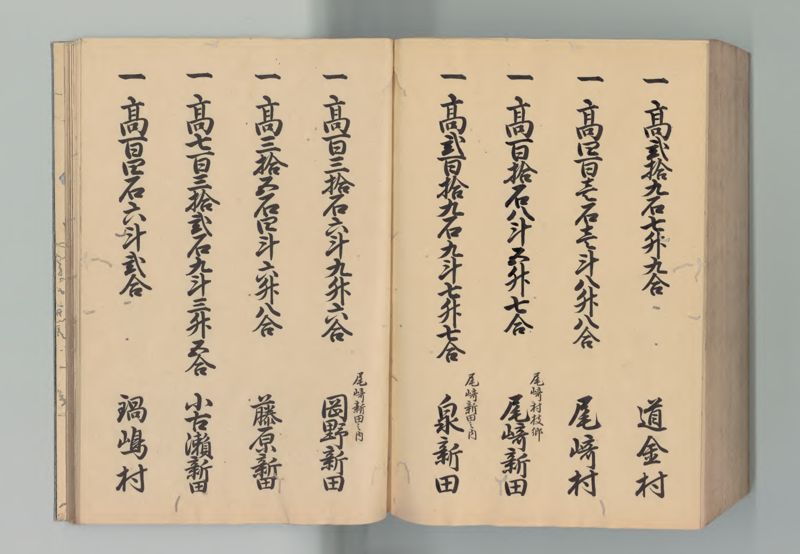 一 高弐拾九石七升九合 道金村
一 高四百壱石壱斗八升八合 尾崎村
一 高百拾石八斗五升七合 尾崎村枝郷 尾崎新田
一 高弐百拾九石九斗七升七合 尾崎新田之内 泉新田
一 高百三拾石六斗九升六合 尾崎新田之内 岡野新田
一 高三拾五石四斗六升八合 藤原新田
一 高七百三拾弐石九斗三升五合 小古瀬新田
一 高百四石六斗弐合 鍋嶋村